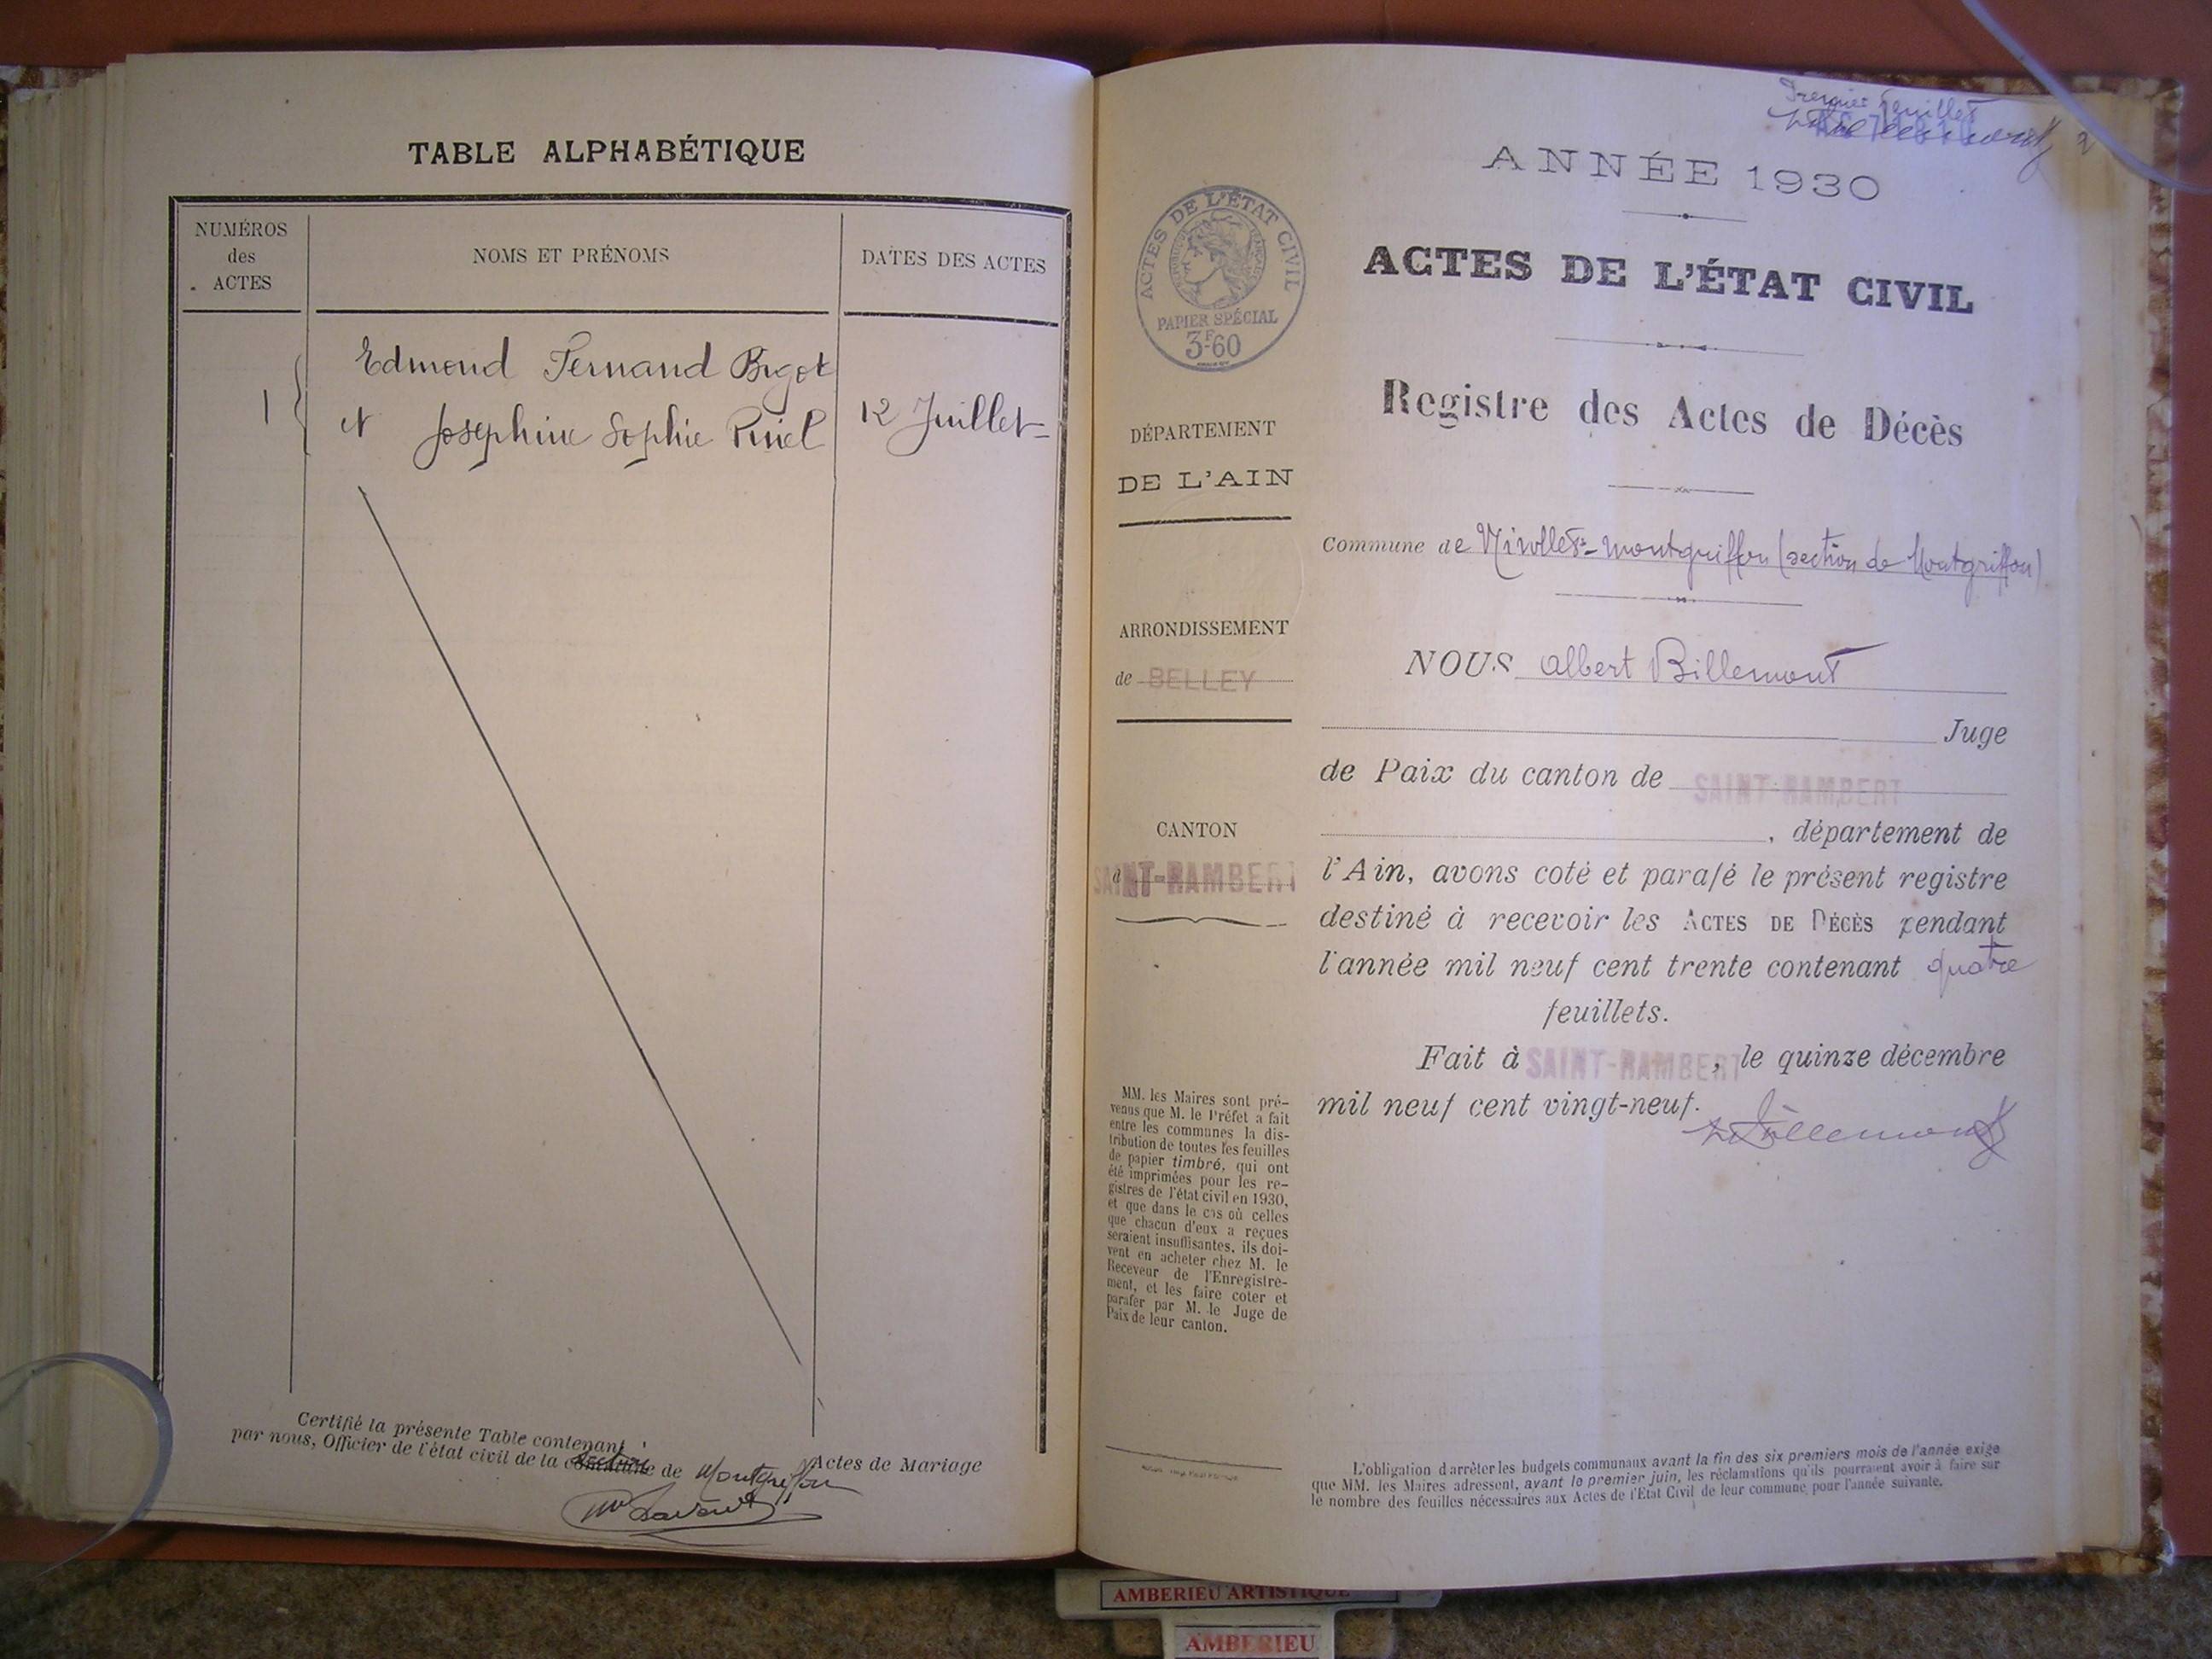 TABLE ALPHABÉTIQUE
NUMÉROS
des
ACTES
NOMS ET PRÉNOMS
DATES DES ACTES
1
Edmond Fernand Bigot
et Joséphine Sophie Pinel
12 Juillet
Certifié la présente Table contenant 1 Actes de Mariage
par nous, Officier de l'état civil de la commune section de Montgriffon
Premier feuillet
ANNÉE 1930
ACTES DE L'ÉTAT CIVIL
PAPIER SPÉCIAL
3F60
ACTES DE L'ÉTAT CIVIL
Registre des Actes de Décès
DÉPARTEMENT
DE L'AIN
Commune de Nivollet-Montgriffon (section de Montgriffon)
ARRONDISSEMENT
de BELLEY
NOUS Albert Billemont
Juge
de Paix du canton de SAINT-RAMBERT
CANTON
d SAINT-RAMBERT
, département de
l'Ain, avons coté et parafé le présent registre
destiné à recevoir les ACTES DE DÉCÈS pendant
l'année mil neuf cent trente contenant quatre
feuillets.
Fait à SAINT-RAMBERT, le quinze décembre
mil neuf cent vingt-neuf.
Billemont
MM. les Maires sont pré-
venus que M. le Préfet a fait
entre les communes la dis-
tribution de toutes les feuilles
de papier timbré, qui ont
été imprimées pour les re-
gistres de l'état civil en 1930,
et que dans le cas où celles
que chacun d'eux a reçues
seraient insuffisantes, ils doi-
vent en acheter chez M. le
Receveur de l'Enregistre-
ment, et les faire coter et
parafer par M. le Juge de
Paix de leur canton.
L'obligation d'arrêter les budgets communaux avant la fin des six premiers mois de l'année exige
que MM. les Maires adressent, avant le premier juin, les réclamations qu'ils pourraient avoir à faire sur
le nombre des feuilles nécessaires aux Actes de l'Etat Civil de leur commune pour l'année suivante.
AMBERIEU ARTISTIQUE
AMBERIEU